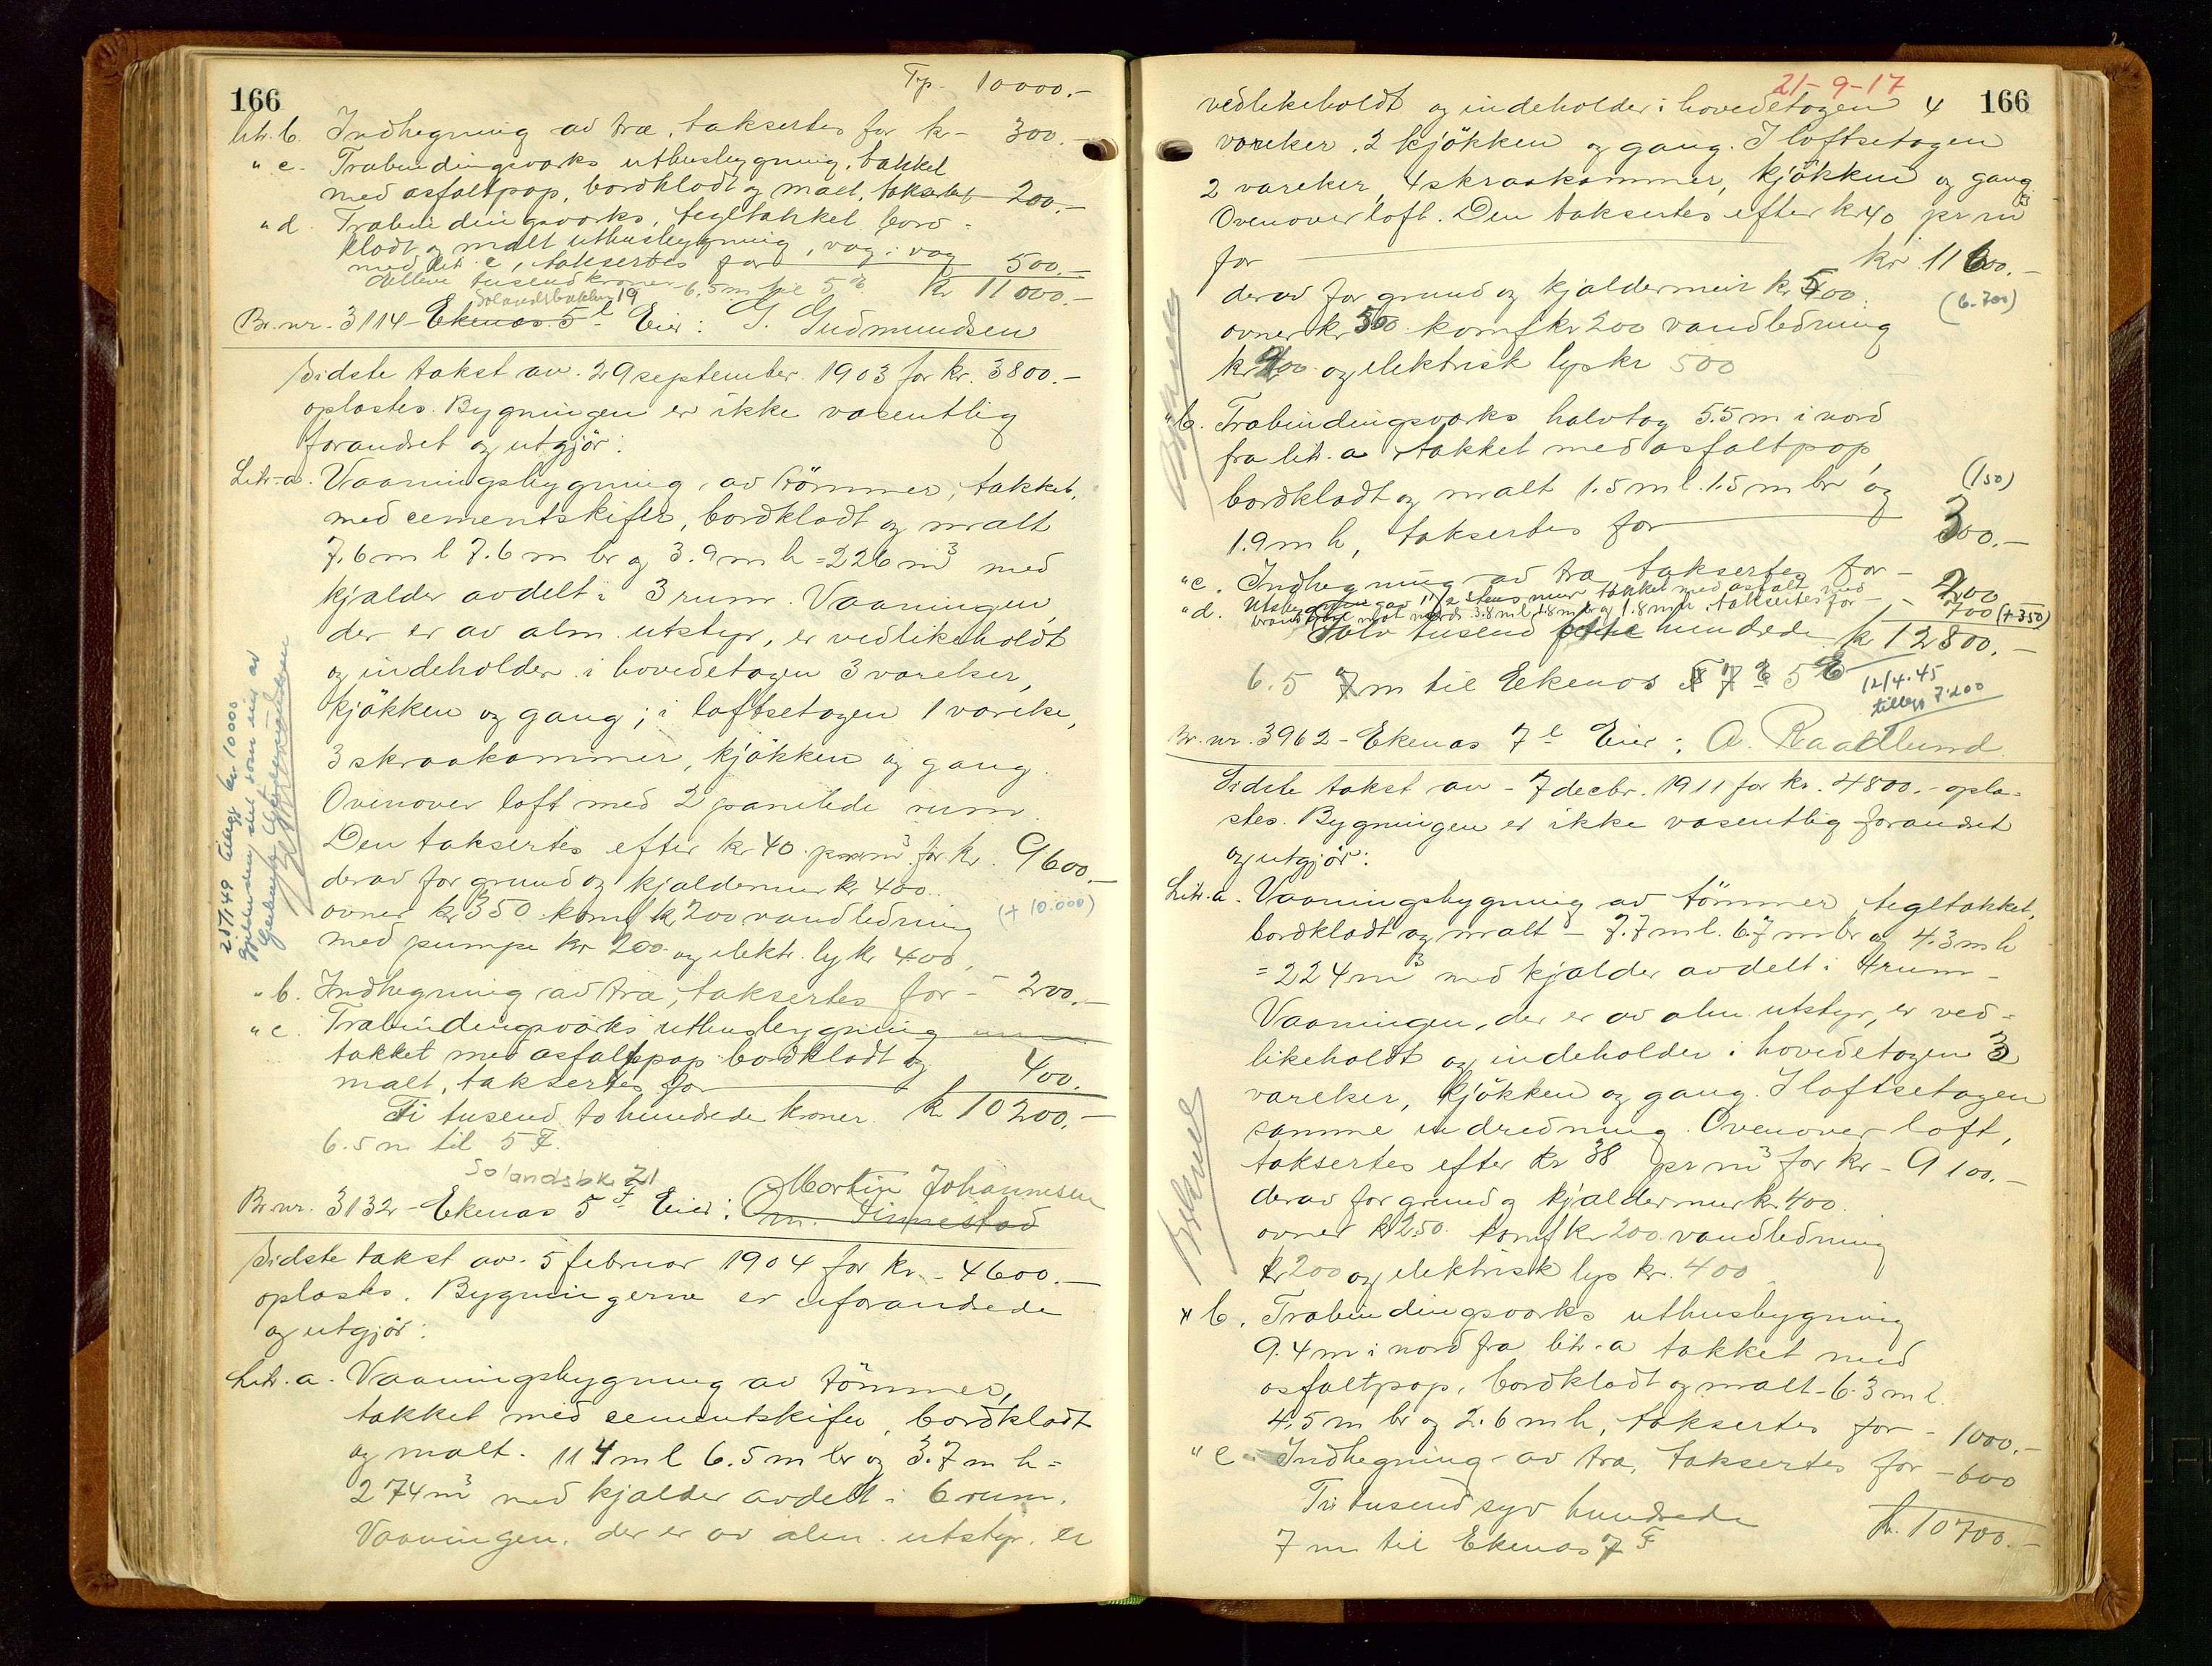 166
Tp. 10000.-
litr. b. Indhegning av træ, taksertes for kr - 300.-
" c. Træbindingsværks uthusbygning, takket
med asfaltpap, bordklædt og malt, taksertes - 200.-
" d. Træbindingsværks, tegltakket bord-
klædt og malt uthusbygning, væg i væg
med litr. c, taksertes for 500.-
Elleve tusend kroner 6.5 m til 5 E kr 11000.-
Solandsbakken 19
Br. nr. 3114 - Ekenæs 5 e Eier: G. Gudmundsen
Sidste takst av. 29 september 1903 for kr. 3800.-
oplæstes. Bygningen er ikke væsentlig
forandret og utgjör:
Litr. a. Vaaningsbygning av tömmer, takket,
med cementskifer, bordklædt og malt
7.6 m l 7.6 m br og 3.9 m h = 226 m³ med
kjælder avdelt i 3 rum. Vaaningen,
der er av alm. utstyr, er vedlikeholdt
og indeholder i hovedetagen 3 værelser,
kjökken og gang; i loftsetagen 1 værelse,
3 skraakammer, kjökken og gang.
Ovenover loft med 2 panelede rum.
Den taksertes efter kr 40 pr m³ for kr. 9600.-
derav for grund og kjældermur kr 400.
ovner kr 350 komf kr 200 vandledning (+ 10.000)
med pumpe kr 200 og elektr. lys kr 400,
" b. Indhegning av træ, taksertes for - 200.-
" c. Træbindingsværks uthusbygning
takket med asfaltpap bordklædt og
malt, taksertes for 400.
Ti tusend to hundrede kroner. kr 10200.-
6.5 m til 5 F.
25/1 49 tillegg kr. 10000
gjeldende det som eies av
Solandsbk. 21
Martin Johannesen
Br. nr. 3132 - Ekenæs 5 F Eier: M. Sinnestad
Sidste takst av. 5 februar 1904 for kr. - 4600.-
oplæstes. Bygningerne er uforandrede
og utgjör:
Litr. a. Vaaningsbygning av tömmer,
takket med cementskifer, bordklædt
og malt. 11 4 m l 6.5 m br og 3.7 m h =
274 m³ med kjælder avdelt i 6 rum.
Vaaningen, der er av alm. utstyr, er
21-9-17
166
vedlikeholdt og indeholder i hovedetagen 4
værelser, 2 kjökken og gang. I loftsetagen
2 værelser, 4 skraakammer, kjökken og gang
Ovenover loft. Den taksertes efter kr 40 pr m³
for kr. 11600.-
derav for grund og kjældermur kr 500. (6.700)
ovner kr 500 komf kr 200 vandledning
kr 400 og elektrisk lys kr 500
" b. Træbindingsværks halvtag 5.5 m i nord
fra litr. a takket med asfaltpap,
bordklædt og malt 1.5 m l. 1.5 m br og (150)
1.9 m h, taksertes for 300.-
" c. Indhegning av træ taksertes for - 200
" d. Utebygning av 1 1/2 stens mur takket med asfalt med
mot nord 3.8 m l 1.8 m br og 1.8 m h, taksertes for - 700 (+350)
Tolv tusend otte hundrede kr 12800.-
6.5 7 m til Ekenæs 5 E
12/4.45
tillegg 7.200
Br. nr. 3962 - Ekenæs 7 e Eier: A. Raadlund
Sidste takst av - 7 decbr. 1911 for kr. 4800.- oplæ-
stes. Bygningen er ikke væsentlig forandret
og utgjör:
Litr. a. Vaaningsbygning av tömmer, tegltakket,
bordklædt og malt - 7.7 m l. 6.7 m br og 4.3 m h
= 224 m³ med kjælder avdelt i 4 rum -
Vaaningen, der er av alm. utstyr, er ved-
likeholdt og indeholder i hovedetagen 3
værelser, kjökken og gang. I loftsetagen
samme indredning. Ovenover loft,
taksertes efter kr 38 pr m³ for kr - 9100.-
derav for grund og kjældermur kr 400.
ovner kr 250. komf kr 200 vandledning
kr 200 og elektrisk lys kr. 400
" b. Træbindingsværks uthusbygning
9.4 m i nord fra litr. a takket med
asfaltpap, bordklædt og malt - 6.3 m l.
4.5 m br og 2.6 m h, taksertes for - 1000.-
" c. Indhegning av træ, taksertes for - 600
Ti tusend syv hundrede kr. 10700.-
7 m til Ekenæs 7 F